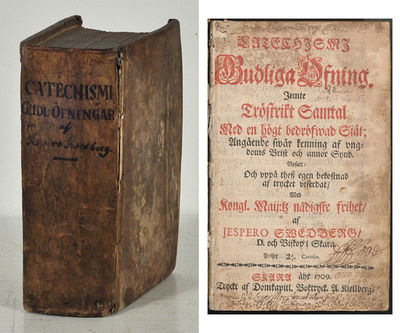 CATECHISMI
GUDL: ÖFNINGAR
af
Jespero Swedberg.
CATECHISMI
Gudliga Öfning.
Jemte
Tröstrikt Samtal
Med en högt bedröfwad Siäl;
Angående swår kenning af ung-
doms Brist och annor Synd.
Upsatt/
Och uppå thess egen bekostnad
af trycket utferdat/
Med
Kongl. Maij:tz nådigste frihet/
af
JESPERO SWEDBERG/
D. och Biskop i Skara.
SKARA åhr 1709.
Tryckt af Domkapitl. Boktryck. A. Kiellberg